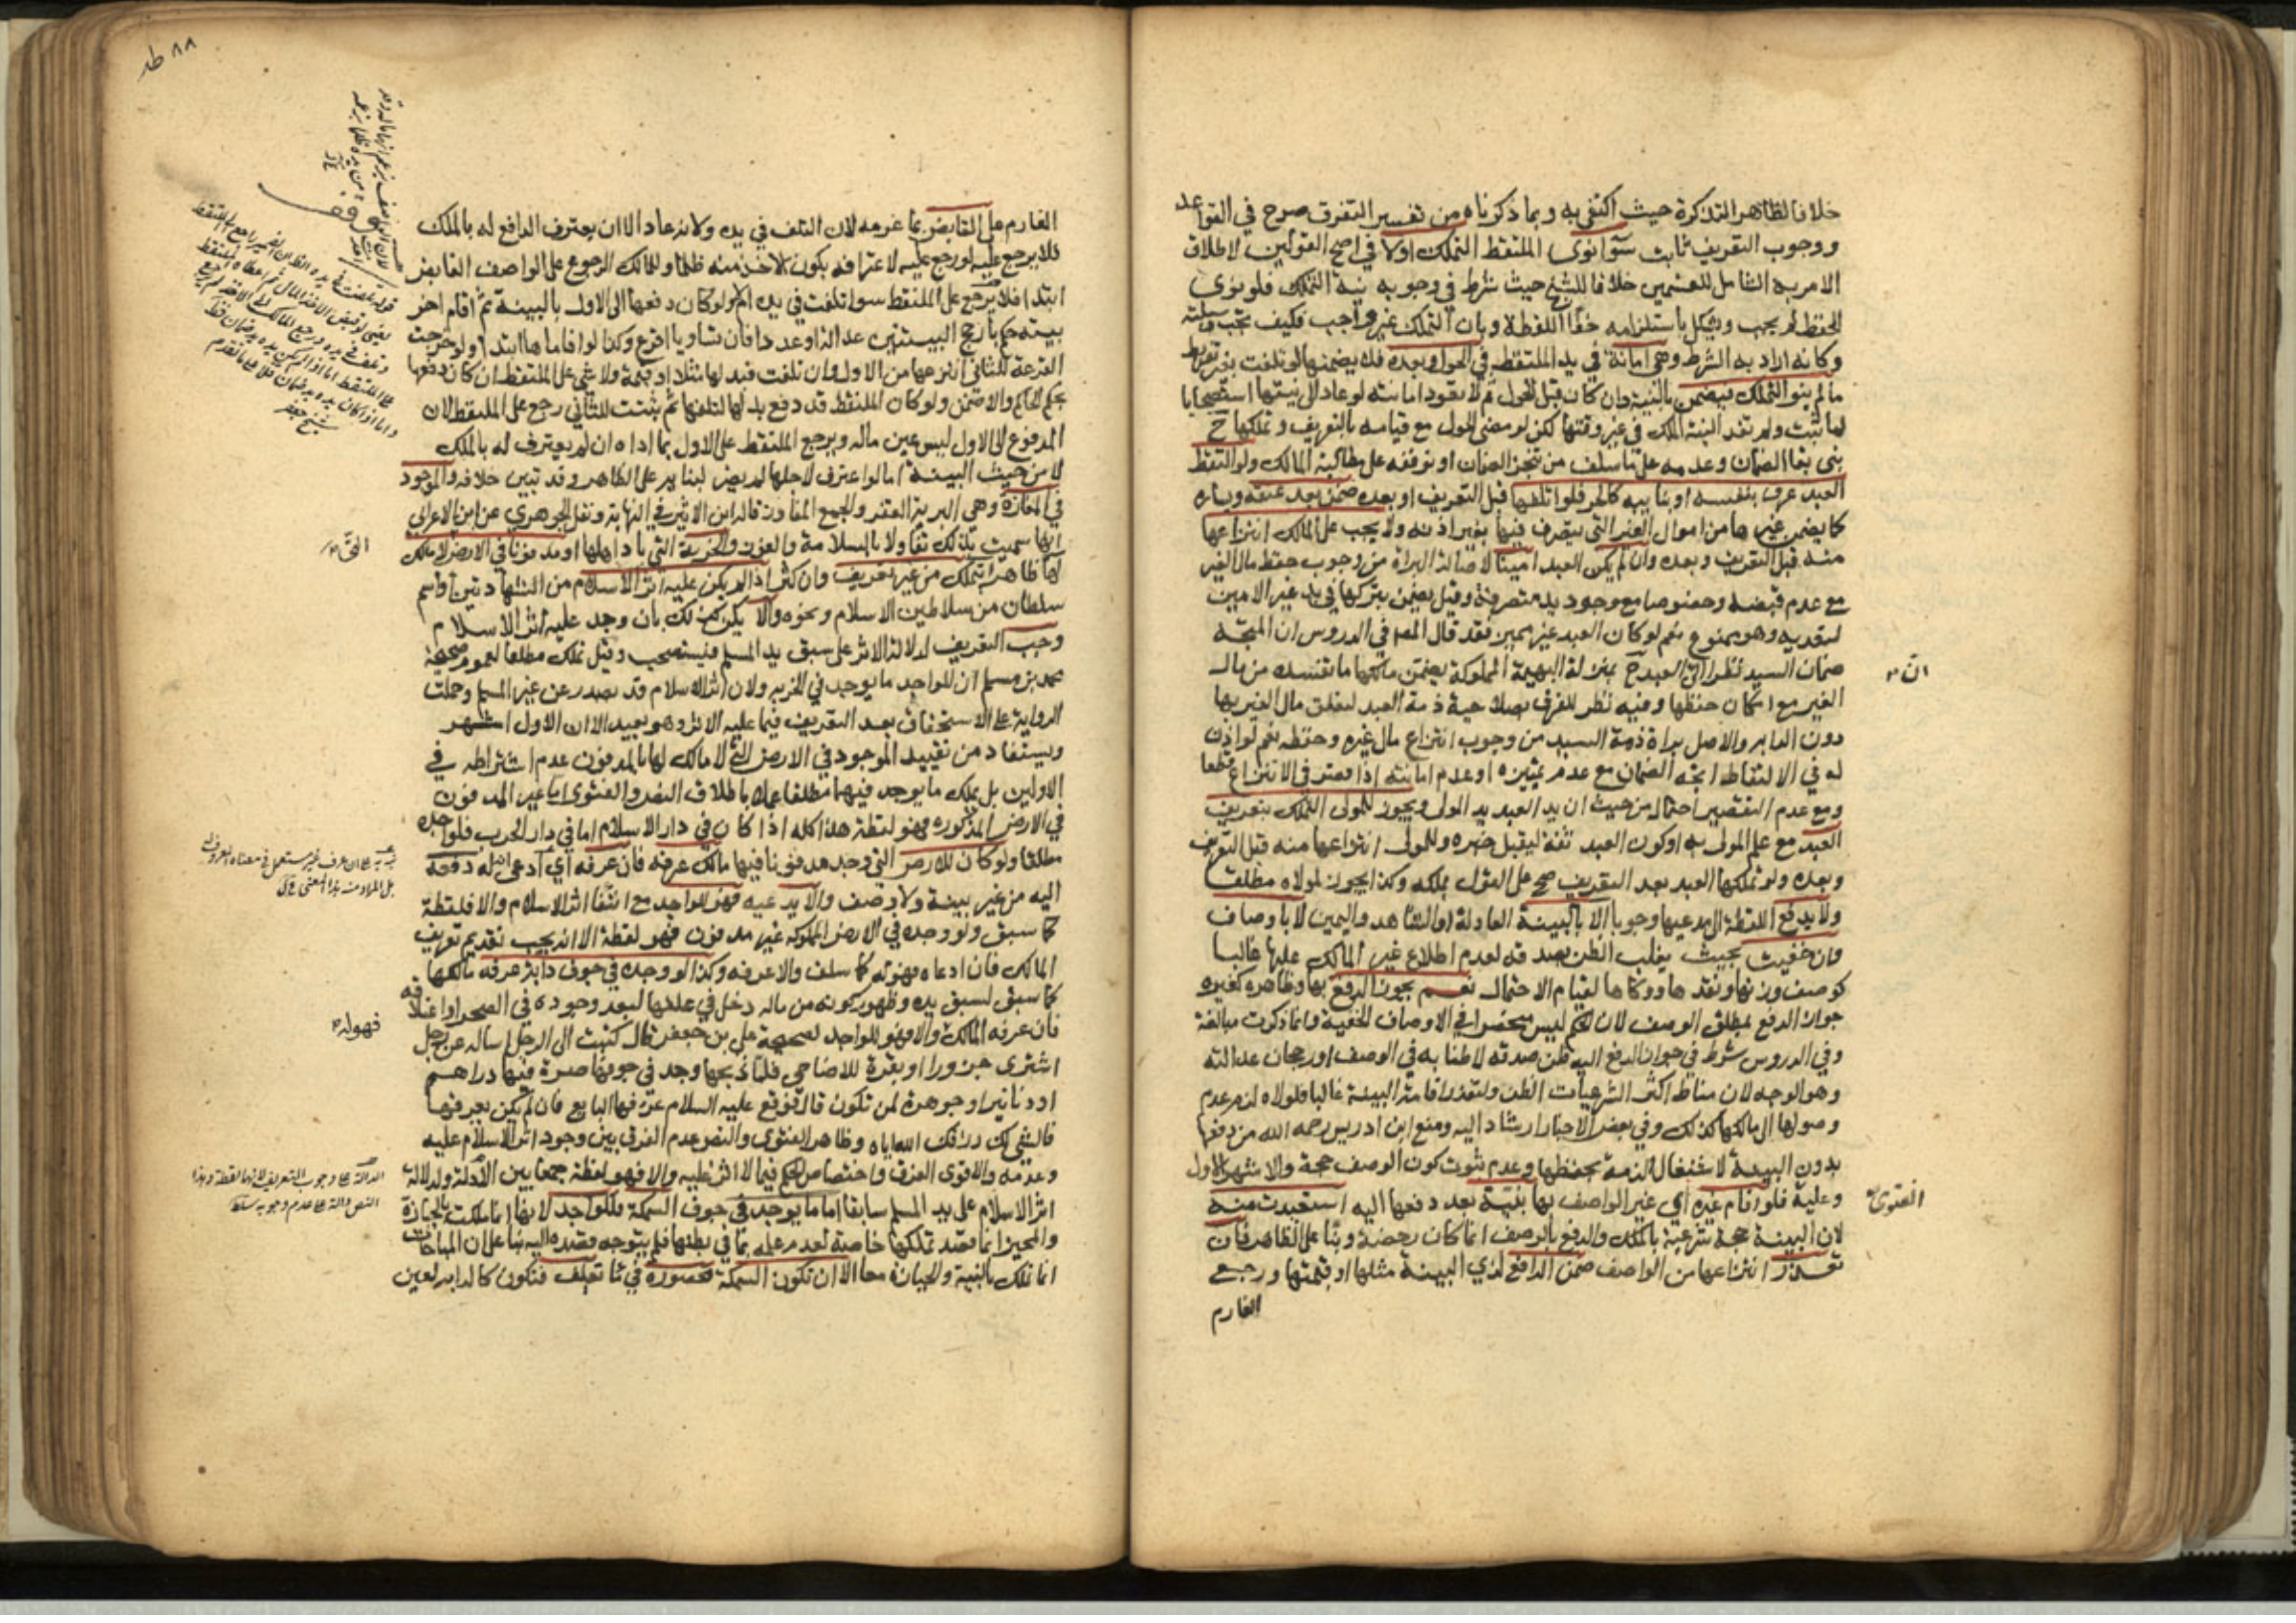 خلافا لظاهر التذكرة حيث اكتفى به وبما ذكرناه من تفسير التفرق صرح في القواعد
ووجوب التعريف ثابت سوآ نوى الملتقط التملك اولا في اصح القولين لاطلاق
الامر به الشامل للقسمين خلافا للشيخ حيث شرط في وجوبه نية التملك فلو نوى
الحفظ لم يجب ويشكل باستلزامه خفآ اللقطة وبان التملك غير واجب فكيف تجب وسيلته
وكانه اراد به الشرط وهى امانة في يد الملتقط في الحول وبعده فلا يضمنها لو تلفت بغير تفريط
ما لم ينو التملك فيضمن بالنية وان كان قبل الحول ثم لا تعود امانته لو عاد الى نيتها استصحابا
لما ثبت ولم تفد النية الملك في غير وقتها لكن لو مضى الحول مع قيامه بالتعريف وتملكها ح
بنى بقآ الضمان وعدمه على ما سلف من تنجز الضمان او توقفه على مطالبة المالك ولو التقط
العبد عرف بنفسه او بنايبه كالحر فلو اتلفها قبل التعريف او بعده ضمن بعد عتقه ويساره
كما يضمن غيرها من اموال الغير التى يتصرف فيها بغير اذنه ولا يجب على المالك انتزاعها
منه قبل التعريف وبعده وان لم يكن العبد امينا لاصالة البراة من وجوب حفظ مال الغير
مع عدم قبضه وخصوصا مع وجود يد متصرفة وقيل يضمن بتركها في يد غير الامين
لتعديه وهو ممنوع نعم لو كان العبد غير مميز فقد قال المص في الدروس ان المتجه
ضمان السيد نظرا الى العبد ح بمنزلة البهيمة المملوكة يضمن مالكها ما تفسده من مال
انّ
الغير مع امكان حفظها وفيه نظر للفرق بصلاحية ذمة العبد لتعلق مال الغير بها
دون الدابه والاصل براة ذمة السيد من وجوب انتزاع مال غيره وحفظه نعم لو اذن
له في الالتقاط اتجه الضمان مع عدم تمييزه او عدم امانته اذا قصر في الانتزاع قطعا
ومع عدم التقصير احتمال من حيث ان يد العبد يد المولى ويجوز للمولى التملك بتعريف
العبد مع علم المولى به او كون العبد ثقة ليقبل خبره وللمولى انتزاعها منه قبل التعريف
وبعده ولو تملكها العبد بعد التعريف صح على القول بملكه وكذا يجوز لمولاه مطلقا
ولا يدفع اللقطة الى مدعيها وجوبا الا بالبينة العادلة او الشاهد واليمين لا بالاوصاف
وان خفيت بحيث يغلب الظن بصدقه لعدم اطلاع غير المالك عليها غالبا
كوصف وزنها ونقدها ووكاها لقيام الاحتمال نعم يجوز الدفع بها وظاهره كغيره
جواز الدفع بمطلق الوصف لان الحكم ليس منحصرا في الاوصاف الخفية وانما ذكرت مبالغة
وفي الدروس شرط في جواز الدفع اليه ظن صدقه لاطنابه في الوصف او رجحان عدالته
وهو الوجه لان مناط اكثر الشرعيات الظن ولتعذر اقامة البينة غالبا فلولاه لزم عدم
وصولها الى مالكها كذلك وفي بعض الاخبار ارشاد اليه ومنع ابن ادريس رحمه الله من دفعها
بدون البينة لاشتغال الذمة بحفظها وعدم ثبوت كون الوصف حجة والاشهر الاول
وعليه فلو اقام غيره اي غير الواصف بها بينة بعد دفعها اليه استعيدت منه
الفتوى
لان البينة حجة شرعية بالملك والدفع بالوصف انما كان رخصة وبنآ على الظاهر فان
تعذر انتزاعها من الواصف ضمن الدافع لذي البينة مثلها او قيمتها ورجع
الغارم
٨٨
الغارم على القابض بما غرمه لان التلف في يده ولانه عاد الا ان يعترف الدافع له بالملك
فلا يرجع عليه لو رجع عليه لاعترافه بكون الاخذ منه ظلما وللمالك الرجوع على الواصف القابض
ابتدا فلا يرجع على الملتقط سوا تلفت في يده ام لا ولو كان دفعها الى الاول بالبينة ثم اقام اخر
بينة حكم بارجح البينتين عدالة او عددا فان تساويا اقرع وكذا لو اقاماها ابتدا ولو خرجت
القرعة للثاني انتزعها من الاول وان تلفت فبدلها مثلا او قيمة ولا شي على الملتقط ان كان دفعها
بحكم الحاكم والا ضمن ولو كان الملتقط قد دفع بدلها لتلفها ثم ثبتت للثاني رجع على الملتقط لان
المدفوع الى الاول ليس عين ماله ويرجع الملتقط على الاول بما اداه ان لم يعترف له بالملك
لا من حيث البينة اما لو اعترف لاجلها لم يضر لبنايه على الظاهر وقد تبين خلافه والموجود
في المفازة وهى البرية القفر والجمع المفاوز قاله ابن الاثير في النهاية ونقل الجوهري عن ابن الاعرابي
انها سميت بذلك تفاولا بالسلامة والفوز والخربة التي باد اهلها او مدفونا في الارض لا مالك
لها ظاهرا يتملك من غير تعريف وان كثر اذا لم يكن عليه اثر الاسلام من الشهادتين او اسم
سلطان من سلاطين الاسلام ونحوه والا يكن كذلك بان وجد عليه اثر الاسلام
وجب التعريف لدلالة الاثر على سبق يد المسلم فيستصحب وقيل يملك مطلقا لعموم صحيحة
محمد بن مسلم ان للواجد ما يوجد في الخربه ولان اثر الاسلام قد يصدر عن غير المسلم وحملت
الحقّ
الرواية على الاستحقاق بعد التعريف فيما عليه الاثر وهو بعيد الا ان الاول اشهر
ويستفاد من تقييد الموجود في الارض التي لا مالك لها بالمدفون عدم اشتراطه في
الاولين بل يملك ما يوجد فيهما مطلقا عملا باطلاق النص والفتوى اما غير المدفون
في الارض المذكوره فهو لقطة هذا كله اذا كان في دار الاسلام اما في دار الحرب فلواجده
مطلقا ولو كان للارض التي وجد مدفونا فيها مالك عرفه فان عرفه اي ادعى انه له دفعه
اليه من غير بينة ولا وصف والا يدعيه فهو للواجد مع انتفآ اثر الاسلام والا فلقطة
كما سبق ولو وجده في الارض المملوكه غير مدفون فهو لقطة الا انه يجب تقديم تعريف
المالك فان ادعاه فهو له كما سلف والا عرفه وكذا لو وجده في جوف دابة عرفه مالكها
كما سبق لسبق يده وظهور كونه من ماله دخل في علفها لبعد وجوده في الصحرا واعتلافه
فان عرفه المالك والا فهو للواجد لصحيحة علي بن جعفر قال كتبت الى الرجل اساله عن رجل
فهو له
اشترى جزورا او بقرة للاضاحي فلما ذبحها وجد في جوفها صرة فيها دراهم
او دنانير او جوهرة لمن تكون قال فوقع عليه السلام عرفها البايع فان لم يكن يعرفها
فالشي لك رزقك الله اياه وظاهر الفتوى والنص عدم الفرق بين وجود اثر الاسلام عليه
وعدمه والاقوى الفرق واختصاص الحكم فيما لا اثر عليه والا فهو لقطة جمعا بين الادلة ولدلالة
اثر الاسلام على يد المسلم سابقا اما ما يوجد في جوف السمكة فللواجد لانها انما ملكت بالحيازة
والمحيز انما قصد تملكها خاصة لعدم علمه بما في بطنها فلم يتوجه قصده اليه بنآ على ان المباحات
انما تملك بالنية والحيازة معا الا ان تكون السمكة محصورة في مآ تعلف فتكون كالدابه لعين